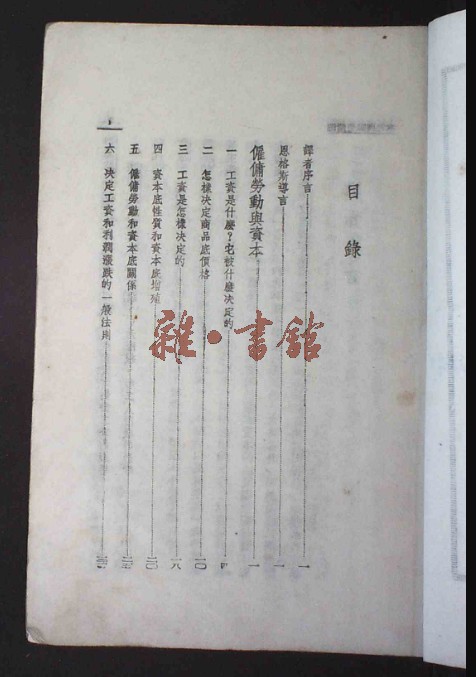 目錄
譯者序言 一
恩格斯導言 一
僱傭勞動與資本 一
一 工資是什麼？它被什麼决定的 四
二 怎樣决定商品底價格 一〇
三 工資是怎樣决定的 一八
四 資本底性質和資本底增殖 二〇
五 僱傭勞動和資本底關係
六 决定工資和利潤漲跌的一般法則
雜·書館